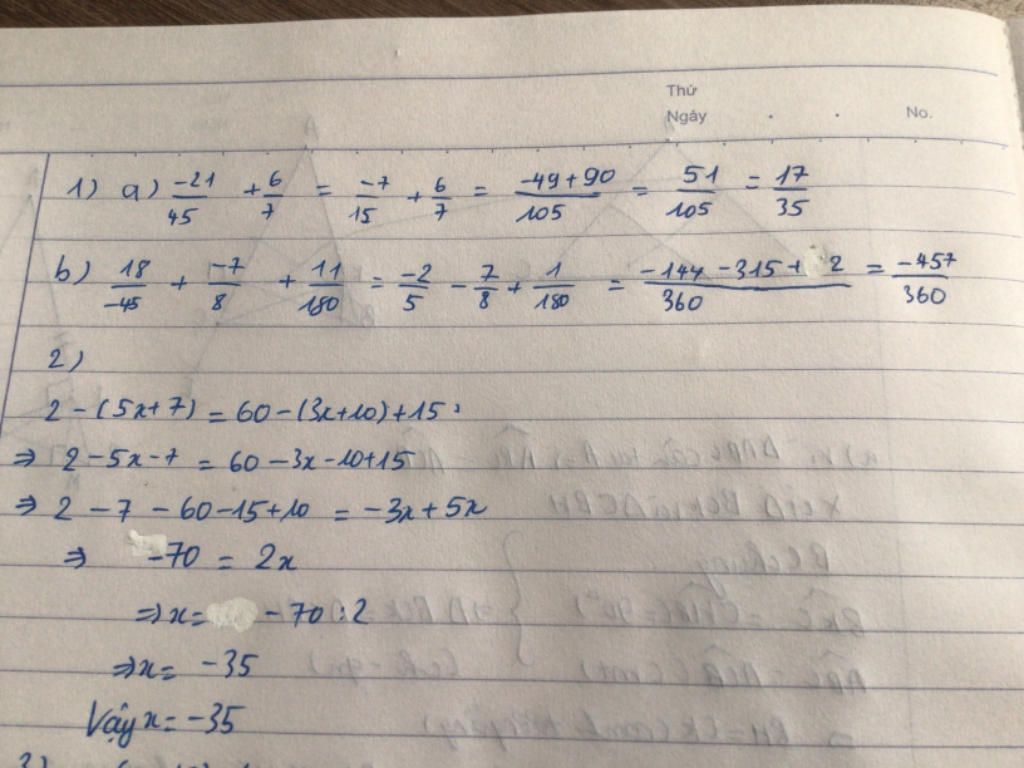 Thứ
Ngày . . No.
1) a) -21/45 + 6/7 = -7/15 + 6/7 = (-49+90)/105 = 51/105 = 17/35
b) 18/-45 + -7/8 + 11/180 = -2/5 - 7/8 + 1/180 = (-144 -315 + 2)/360 = -457/360
2)
2-(5x+7) = 60-(3x+10)+15
⇒ 2-5x-7 = 60-3x-10+15
⇒ 2-7-60-15+10 = -3x+5x
⇒ -70 = 2x
⇒ x = -70:2
⇒ x = -35
Vậy x = -35